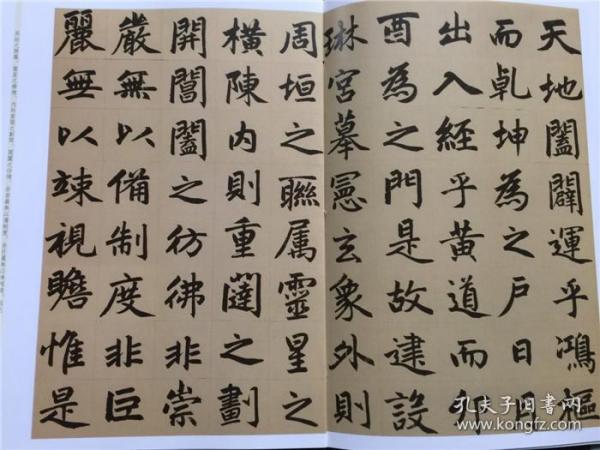 天地闔闢運乎鴻樞
而乾坤為之戶日月
出入經乎黃道而卯
酉為之門是故建設
琳宮摹憲玄象外則
周垣之聯属靈星之
橫陳内則重闥之劃
開閶闔之彷彿非崇
嚴無以備制度非巨
麗無以竦視瞻惟是
孔夫子旧书网
www.kongfz.com